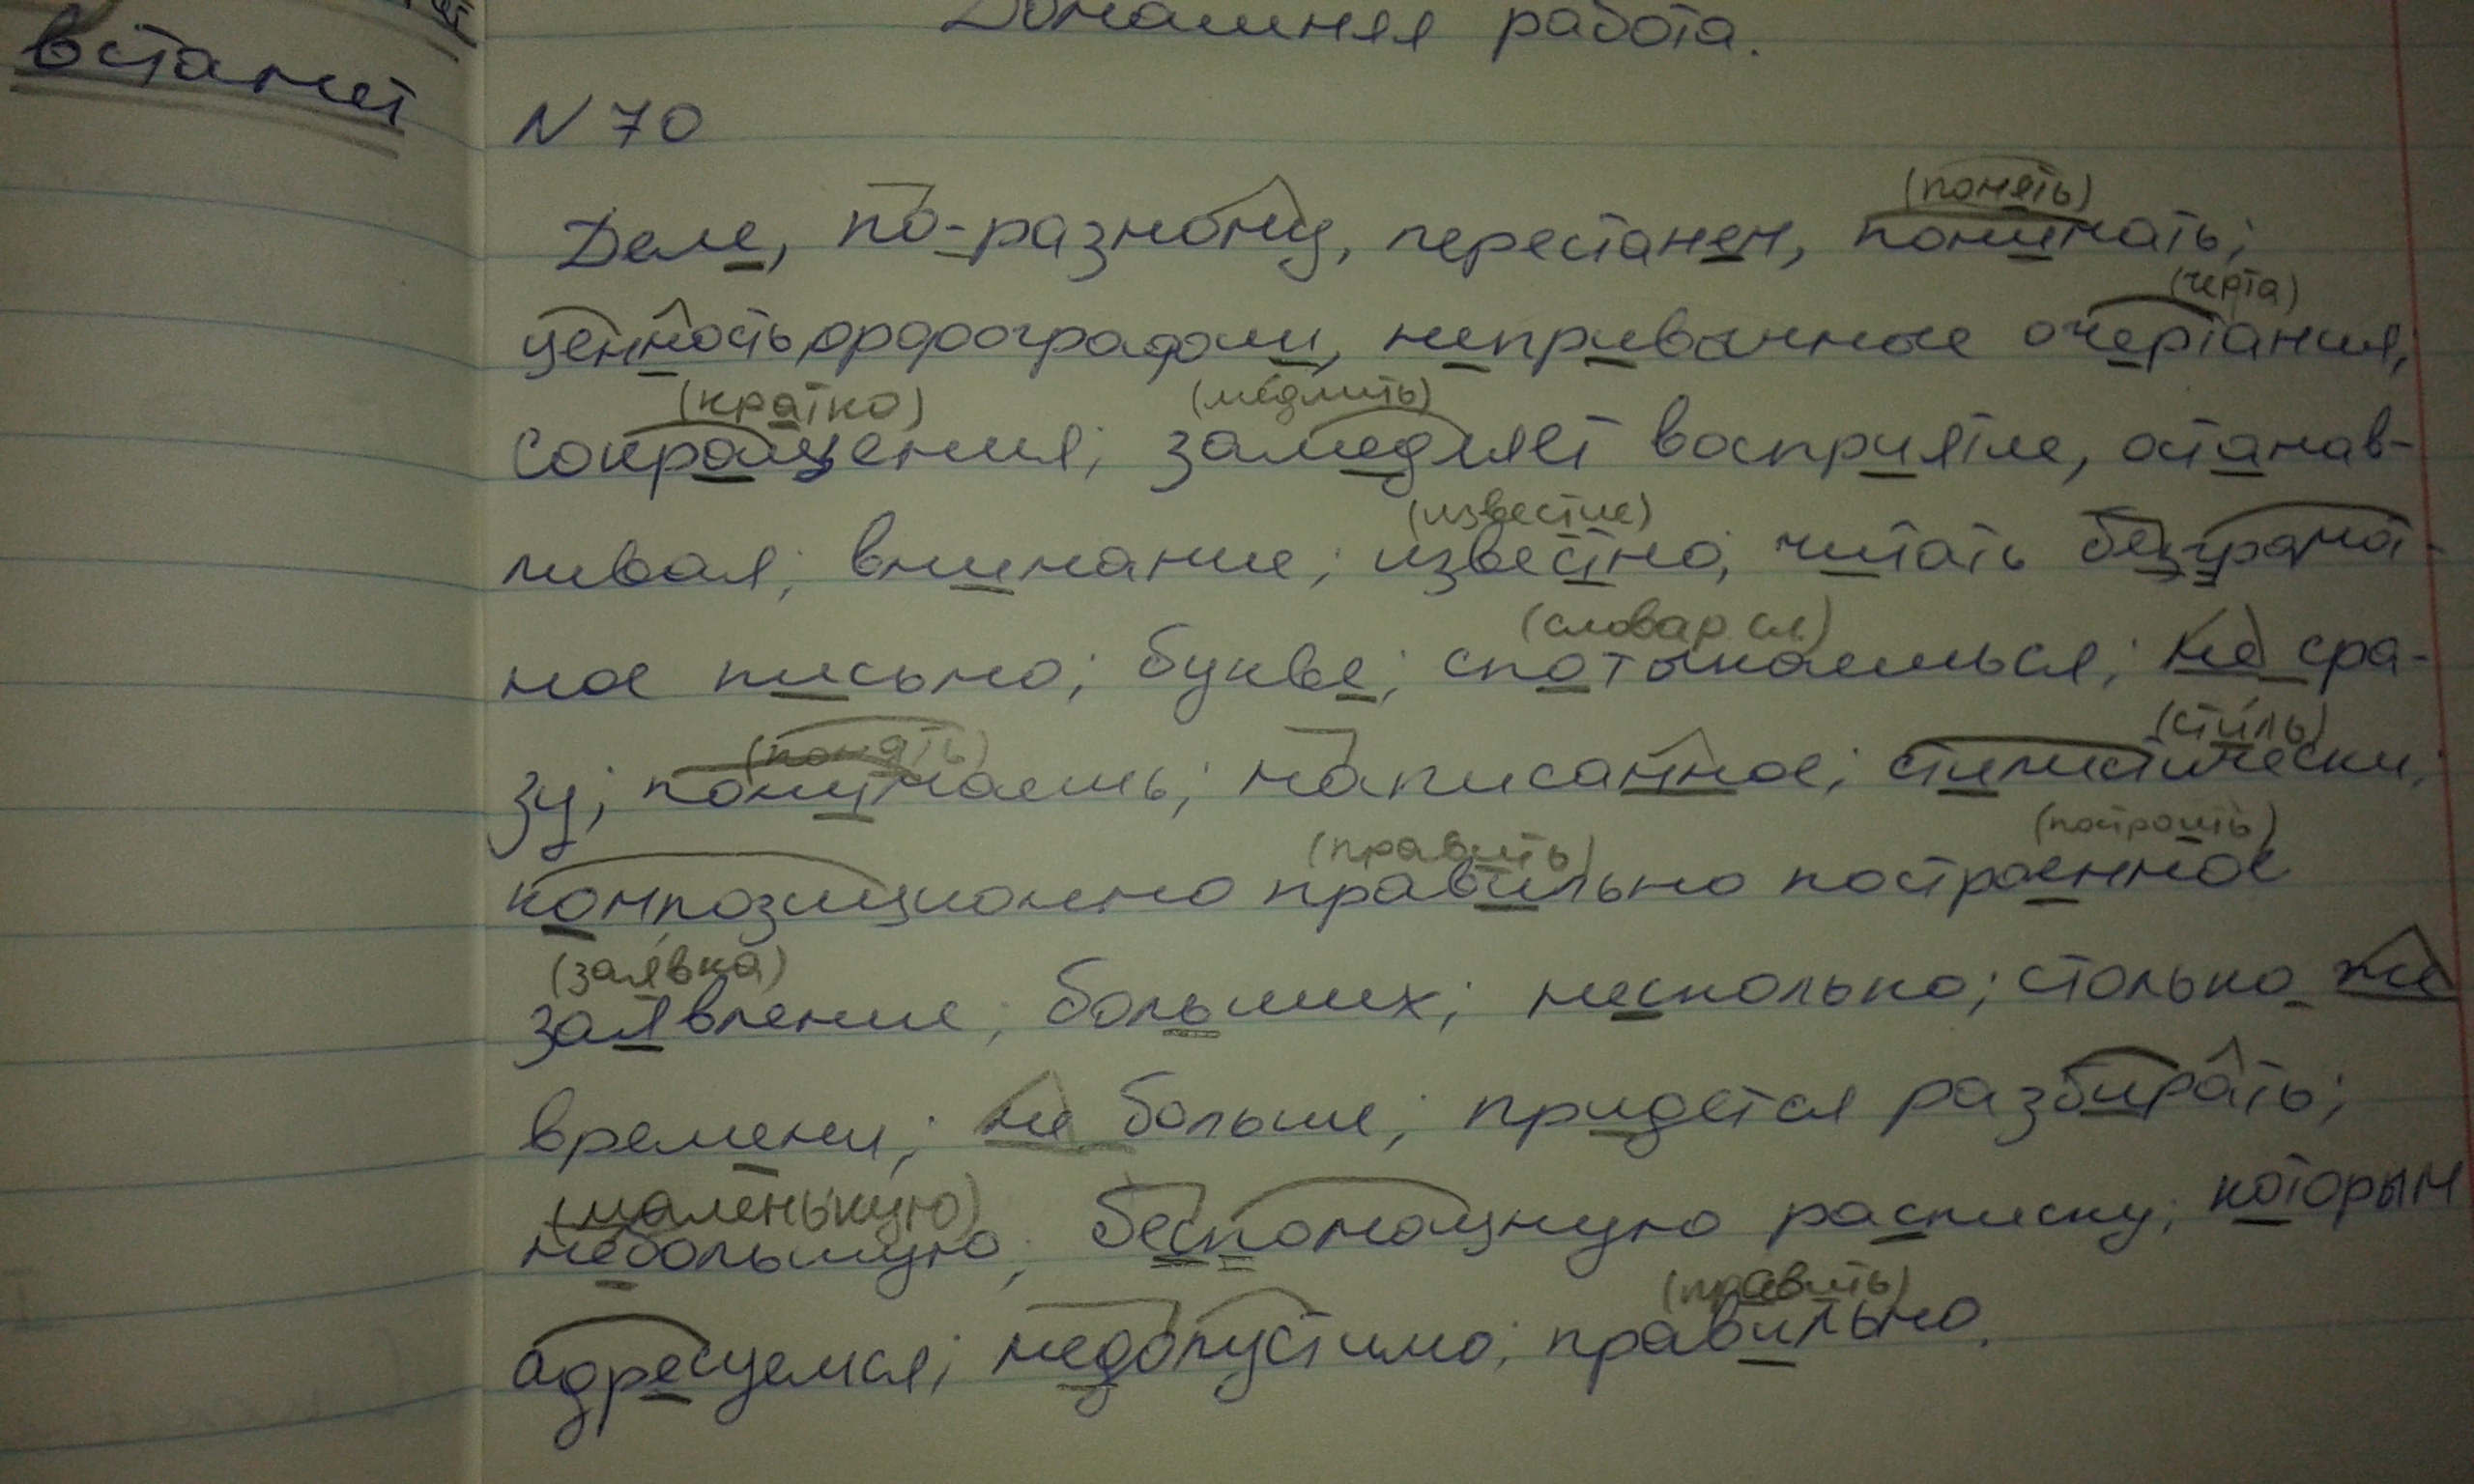 встанет
Домашняя работа.
N 70
(понять)
Деле, по-разному, перестанем, понимать;
(черта)
ценность орфографии, непривычные очертания;
(кратко) (медлить)
сокращения; замедляет восприятие, останав-
(известие)
ливая; внимание; известно; читать безграмот-
(словар сл.)
ное письмо; букве; спотыкаешься; не сра-
(понять) (стиль)
зу; понимаешь; написанное; стилистически;
(править) (построить)
композиционно правильно построенное
(заявка)
заявление; больших; несколько; столько же
времени; не больше; придется разбирать;
(маленькую)
небольшую; беспомощную расписку; которым
(править)
адресуемся; недопустимо; правильно.